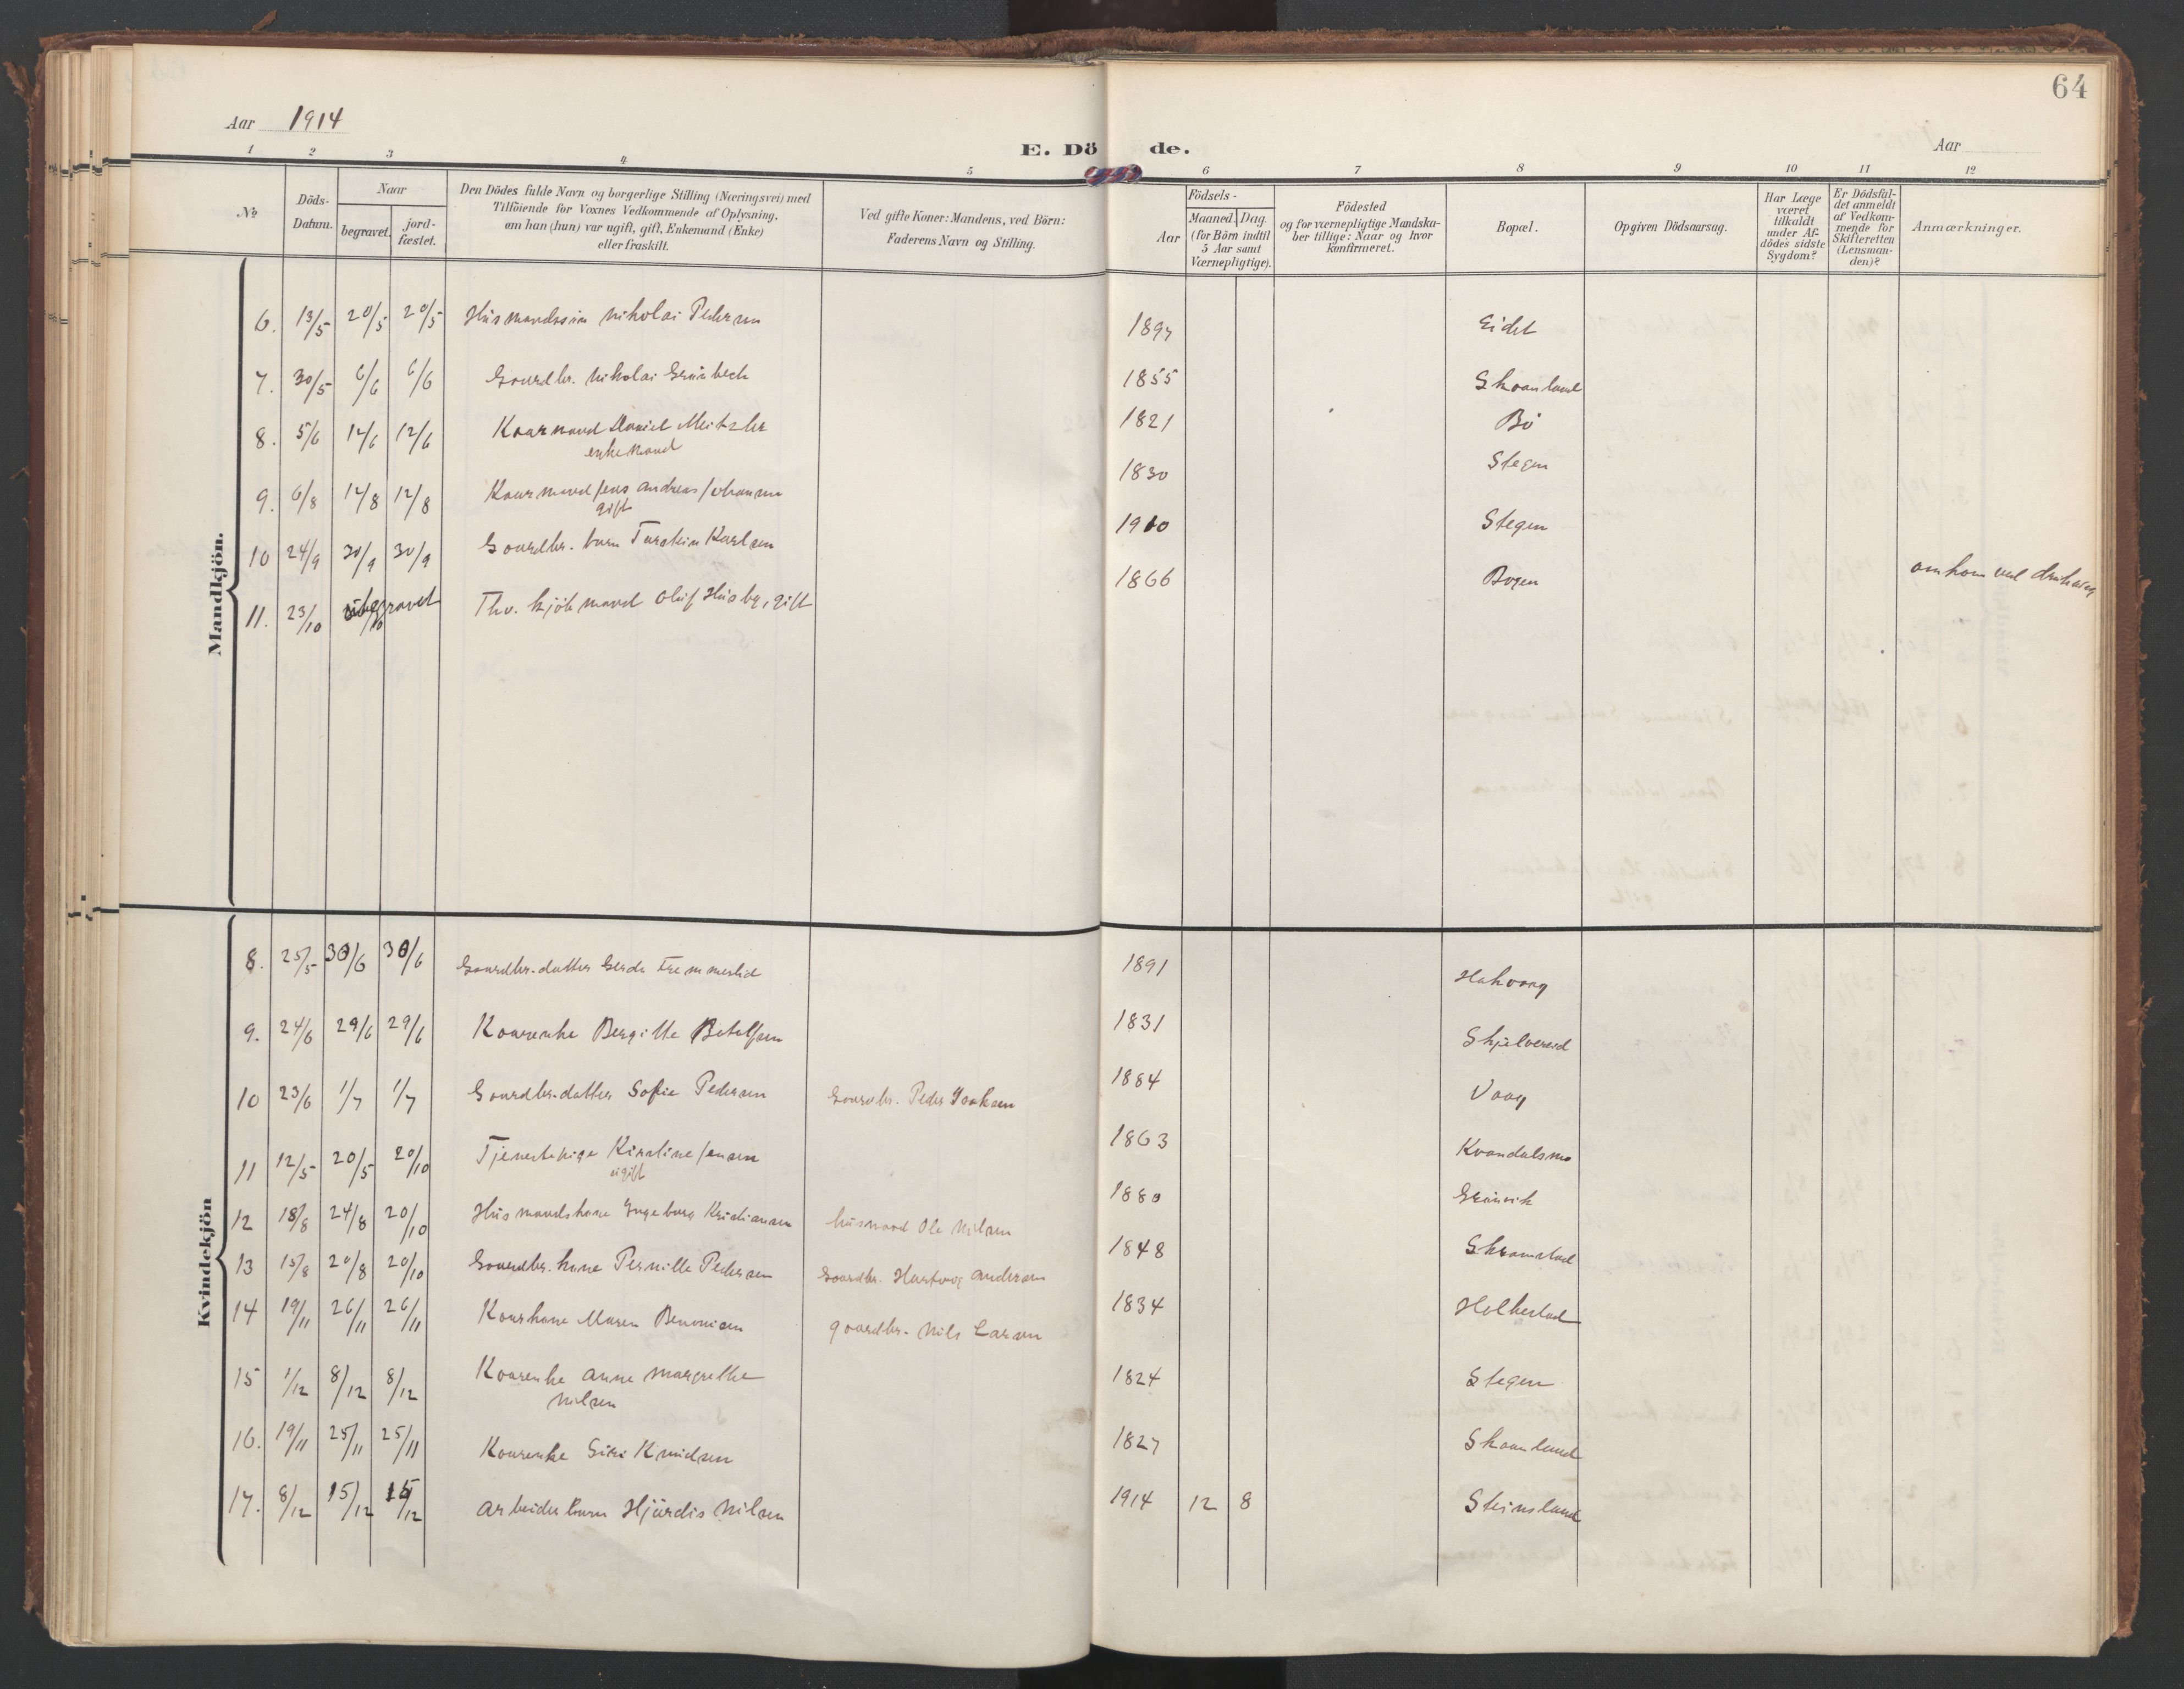 64
Aar 1914
E. Döde.
Aar
1 2 3 4 5 6 7 8 9 10 11 12
No
Döds-Datum.
Naar
begravet.
jord-fæstet.
Den Dödes fulde Navn og borgerlige Stilling (Næringsvei) med
Tilföiende for Voxnes Vedkommende af Oplysning,
om han (hun) var ugift, gift, Enkemand (Enke)
eller fraskilt.
Ved gifte Koner: Mandens, ved Börn:
Faderens Navn og Stilling.
Födsels-
Aar
Maaned. Dag.
(for Börn indtil
5 Aar samt
Værnepligtige).
Födested
og for værnepligtige Mandska-
ber tillige: Naar og hvor
konfirmeret.
Bopæl.
Opgiven Dödsaarsag.
Har Læge
været
tilkaldt
under Af-
dödes sidste
Sygdom?
Er Dödsfal-
det anmeldt
af Vedkom-
mende for
Skifteretten
(Lensman-
den)?
Anmærkninger.
Mandkjön.
6. 13/5 20/5 20/5 Husmandssön Nikolai Pedersen 1897 Eidet
7. 30/5 6/6 6/6 Gaardbr. Nikolai Grönbech 1855 Skaanland
8. 5/6 12/6 12/6 Kaarmand Daniel 1821 Bö
enkemand
9. 6/8 12/8 12/8 Kaarmand Jens Andreas Johansen 1830 Stegen
gift
10 24/9 30/9 30/9 Gaardbr. barn Torstein Karlsen 1910 Stegen
11. 23/10 ubegravet Thv. kjöbmand Oluf Husby, gift 1866 Bogen omkom ved drukning
Kvindekjön
8. 25/5 30/6 30/6 Gaardbr.datter Gerda 1891 Hakvaag
9. 24/6 29/6 29/6 Kaarenke Bergitte Betelsen 1831 Skjelvereid
10 23/6 1/7 1/7 Gaardbr.datter Sofie Pedersen Gaardbr. Peder Isaksen 1884 Vaag
11 12/5 20/5 20/10 Tjenestepige Kirstine Jensen 1863 Kvandalsmo
ugift
12 18/8 24/8 20/10 Husmandskone Ingeborg Kristiansen husmand Ole Nilsen 1880 Grönvik
13 15/8 20/8 20/10 Gaardbr. kone Pernille Pedersen Gaardbr. Hartvig Andersen 1848 Skramstad
14 19/11 26/11 26/11 Kaarkone Maren Benonisen gaardbr. Nils Larsen 1834 Helkestad
15 1/12 8/12 8/12 Kaarenke Anne Margrethe 1824 Stegen
Nilsen
16. 19/11 25/11 25/11 Kaarenke Siri Knudsen 1827 Skaanland
17. 8/12 15/12 15/12 Arbeiderbarn Hjördis Nilsen 1914 12 8 Steinsland